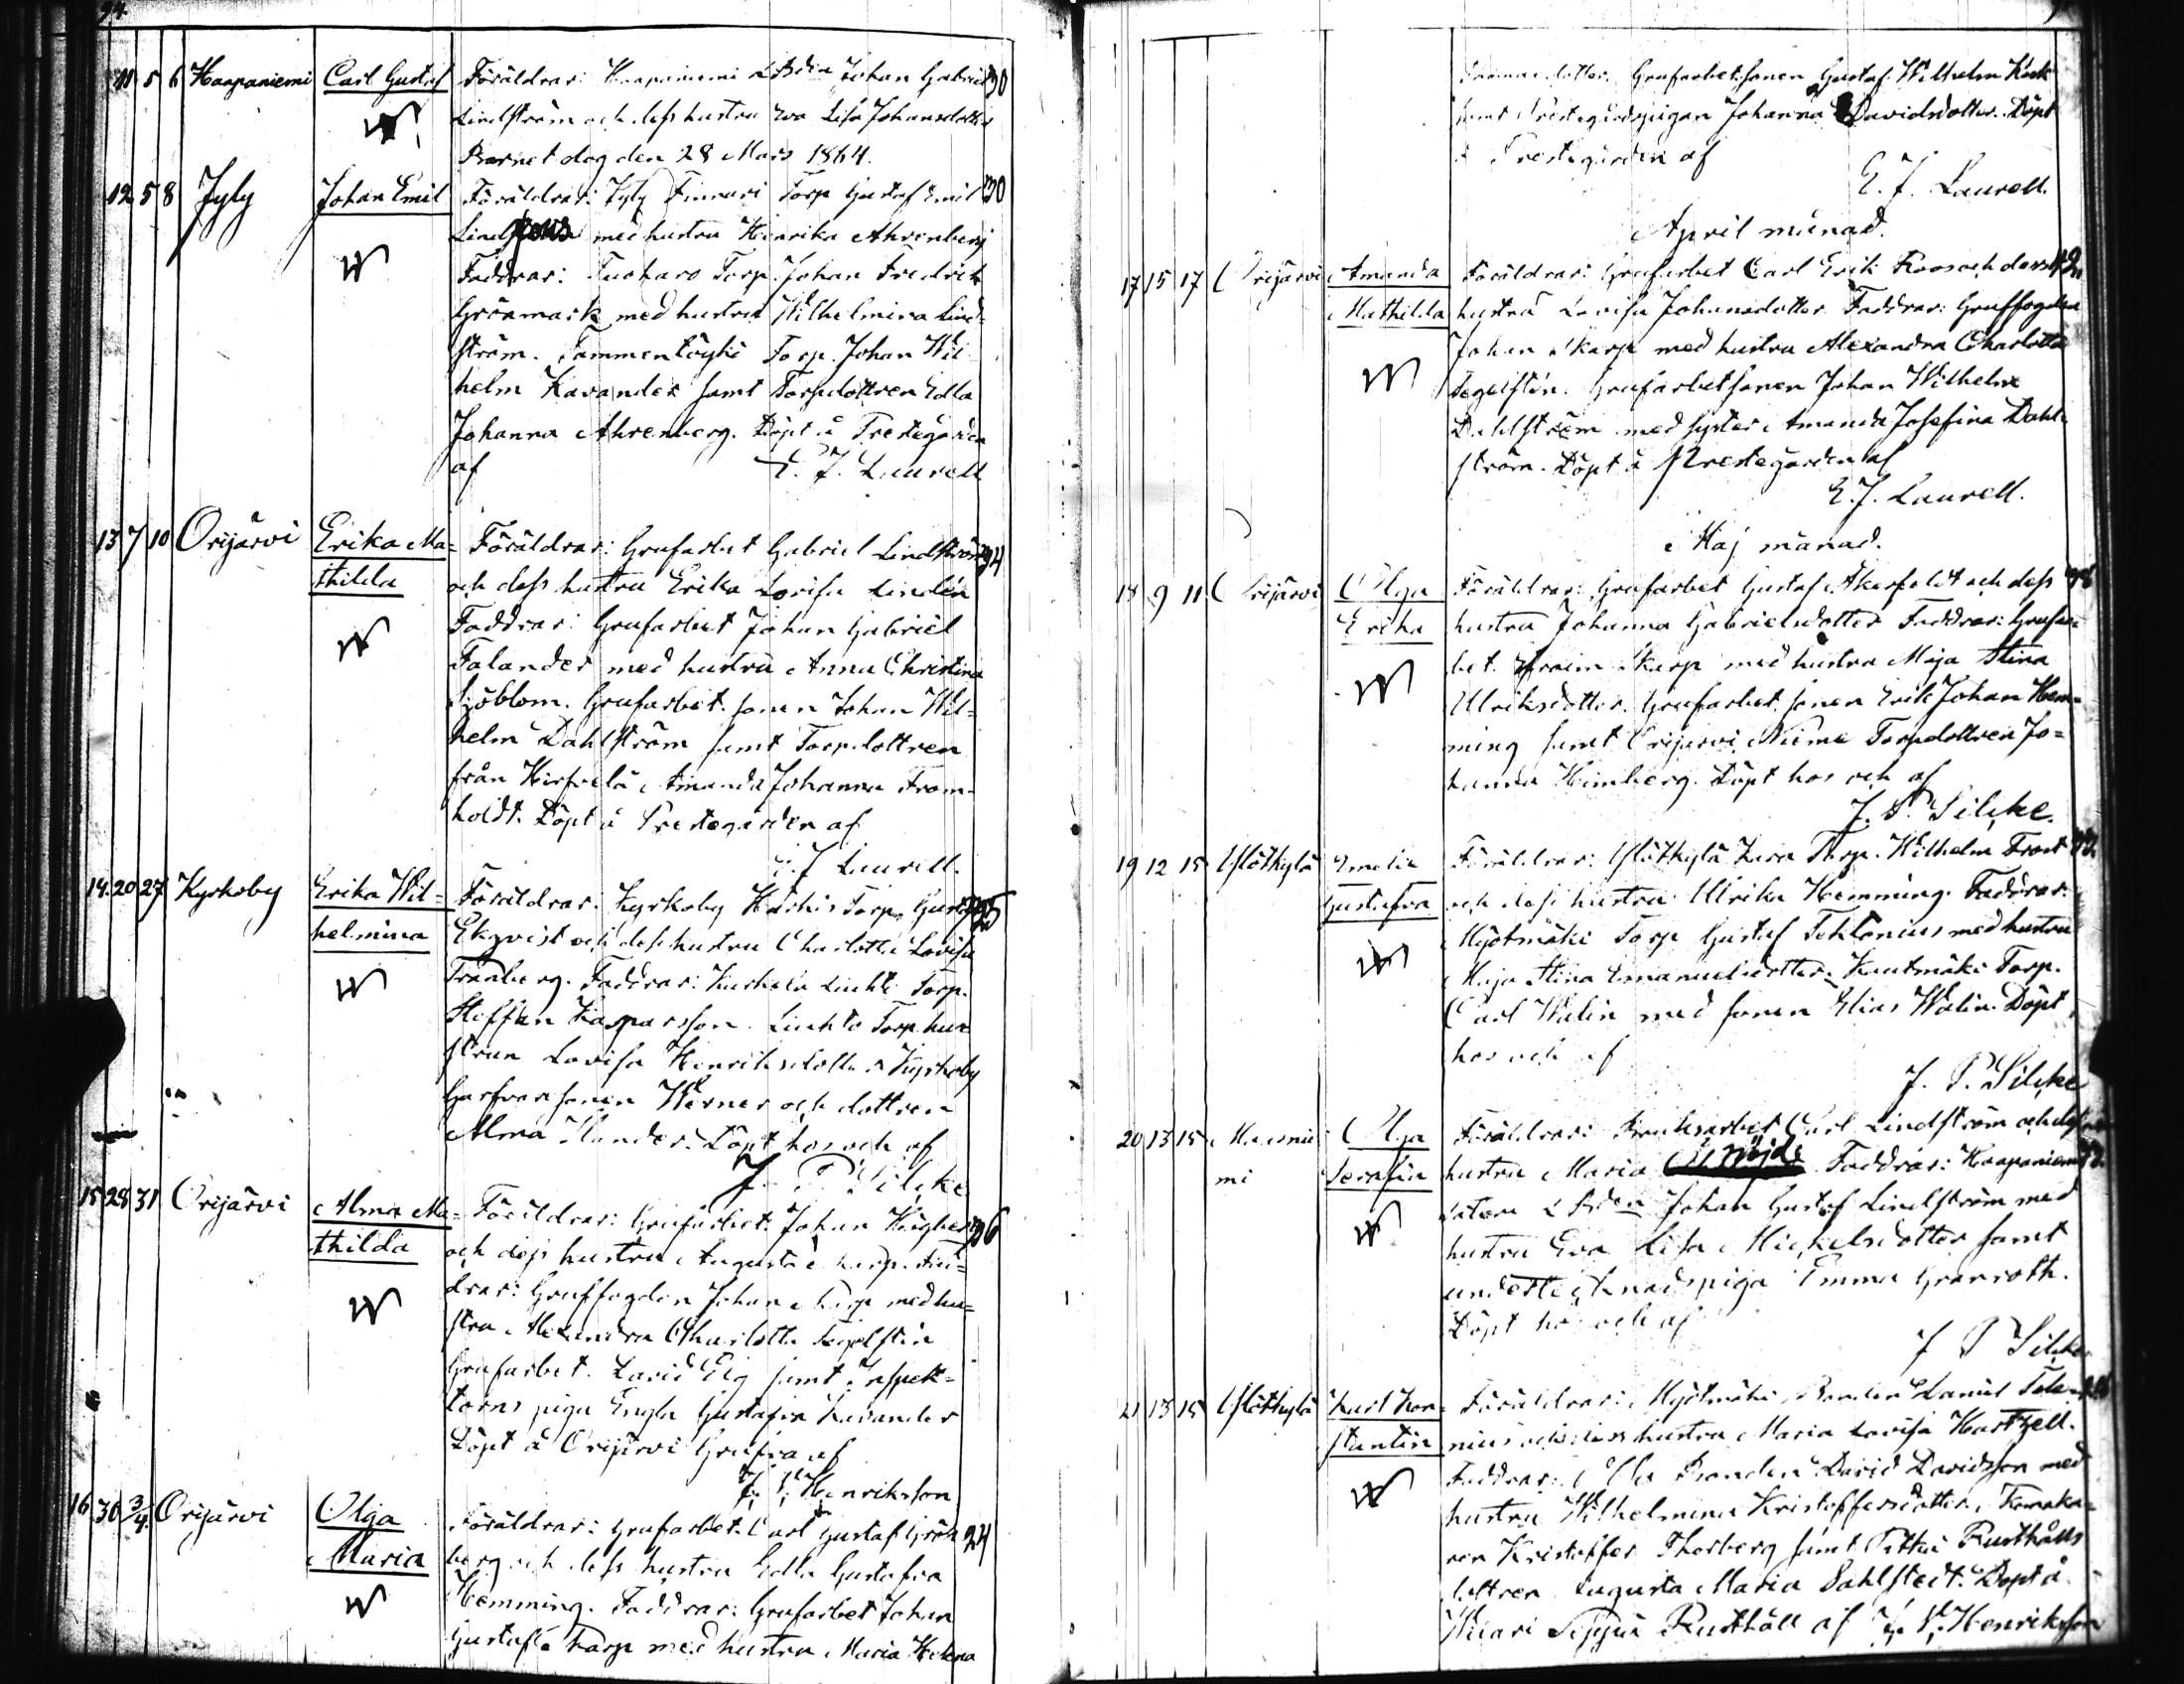 94.
11 5 6 Haapaniemi Carl Gustaf Föräldrar: Haapaniemi Johan Gabriel 30
Lindström och dess hustru Eva Lisa Johansdotter
Barnet dog den 28 Mars 1864.
12 5 8 Jyly Johan Emil Föräldrar: Jyly Finnari Torp. Gustaf Emil 30
med hustru Henrika Ahrenberg
Faddrar: Tuoharo Torp. Johan Fredrik
Grönmark med hustru Wilhelmina Lind-
ström. Torp. Johan Wil-
helm Kavander samt Torpdottren Edla
Johanna Ahrenberg. Döpt å Prestegården
af E. J. Laurell
13 7 10 Orijärvi Erika Ma= Föräldrar: Grufarbet Gabriel Lindström 24
thilda och dess hustru Erika Lovisa Lindén
Faddrar: Grufarbet Johan Gabriel
Falander med hustru Anna Christina
Sjöblom. Grufarbet. sonen Johan Wil=
helm Dahlström samt Torpdottren
från Hirsvelä Amanda Johanna From-
holdt. Döpt å Prestegården af
E. J. Laurell.
14 20 27 Kyrkoby Erika Wil= Föräldrar: Kyrkoby Torp. Gustaf 25
helmina Ekqvist och dess hustru Charlotta Lovisa
Tranberg. Faddrar: Torp.
Steffan Kasparsson. Torp. hu
strun Lovisa Henriksdotter Kyrkoby
Garfvare sonen Werner och dottren
Alma Döpt hos och af
J. P. Silcke
15 28 31 Orijärvi Alma Ma= Föräldrar: Grufarbet. Johan 26
thilda och dess hustru Augusta Karp. Fad=
drar: Gruffogden Johan Karp med hu=
stru Alexandra Charlotta Segelstén
Grufarbet. David Elg samt Inspek=
torns piga Engla Gustafva Kavander
Döpt å Orijärvi Grufva af
Henriksson
16 30 3/4 Orijärvi Olga Föräldrar: Grufarbet. Carl Gustaf Grön 24
Maria berg och dess hustru Edla Gustafva
Hemming. Faddrar: Grufarbet Johan
Gustaf Karp med hustru Maria Helena
Grufarbet. sonen Gustaf Wilhelm
samt Prestegårdspigan Johanna Davidsdotter. Döpt
å Prestegården af
E. J. Laurell.
April månad.
17 15 17 Orijärvi Amanda Föräldrar: Grufarbet Carl Erik Roos och dess
Mathilda hustru Lovisa Johansdotter Faddrar: Gruffogden
Johan Karp med hustru Alexandra Charlotta
Segelstén. Grufarbet sonen Johan Wilhelm
Dahlström med syster Amanda Josefina Dahl-
ström. Döpt å Prestegården af
E. J. Laurell.
Maj månad.
18 9 11 Orijärvi Olga Föräldrar: Grufarbet Gustaf Åkerfeldt och dess
Erika hustru Johanna Gabrielsdotter Faddrar: Grufar-
bet. Efraim Karp med hustru Maja Stina
Ulriksdotter. Grufarbet. sonen Erik Johan Hem-
ming samt Orijärvi Torpdottren Jo=
hanna Heimberg. Döpt hos och af
J. P. Silcke.
19 12 15 Yliskylä Emelie Föräldrar: Yliskylä Torp. Wilhelm Frost
Gustafva och dess hustru Ulrika Hemming. Faddrar:
Myötmäki Torp Gustaf med hustru
Maja Stina Emanuelsdotter. Torp.
Carl Walin med sonen Elias Walin. Döpt
hos och af
J. P. Silcke
20 13 15 Olga Föräldrar: Bruksarbet Carl Lindström och dess
mi Serafia hustru Maria Faddrar: Haapaniemi
Johan Gustaf Lindström med
hustru Eva Lisa Mickelsdotter samt
undertecknads piga Emma Granroth.
Döpt hos och af
J P Silcke
21 13 15 Yliskylä Karl Kon= Föräldrar: Myötmäki Bonden Daniel
stantin nius och dess hustru Maria Lovisa Hartzell.
Faddrar: Bonden David Davidsson med
hustru Wilhelmina Kristoffersdotter.
ren Kristoffer Thorberg samt Rusthålls
dottren Augusta Maria Sahlstedt. Döpt å
Rusthåll af Henriksson